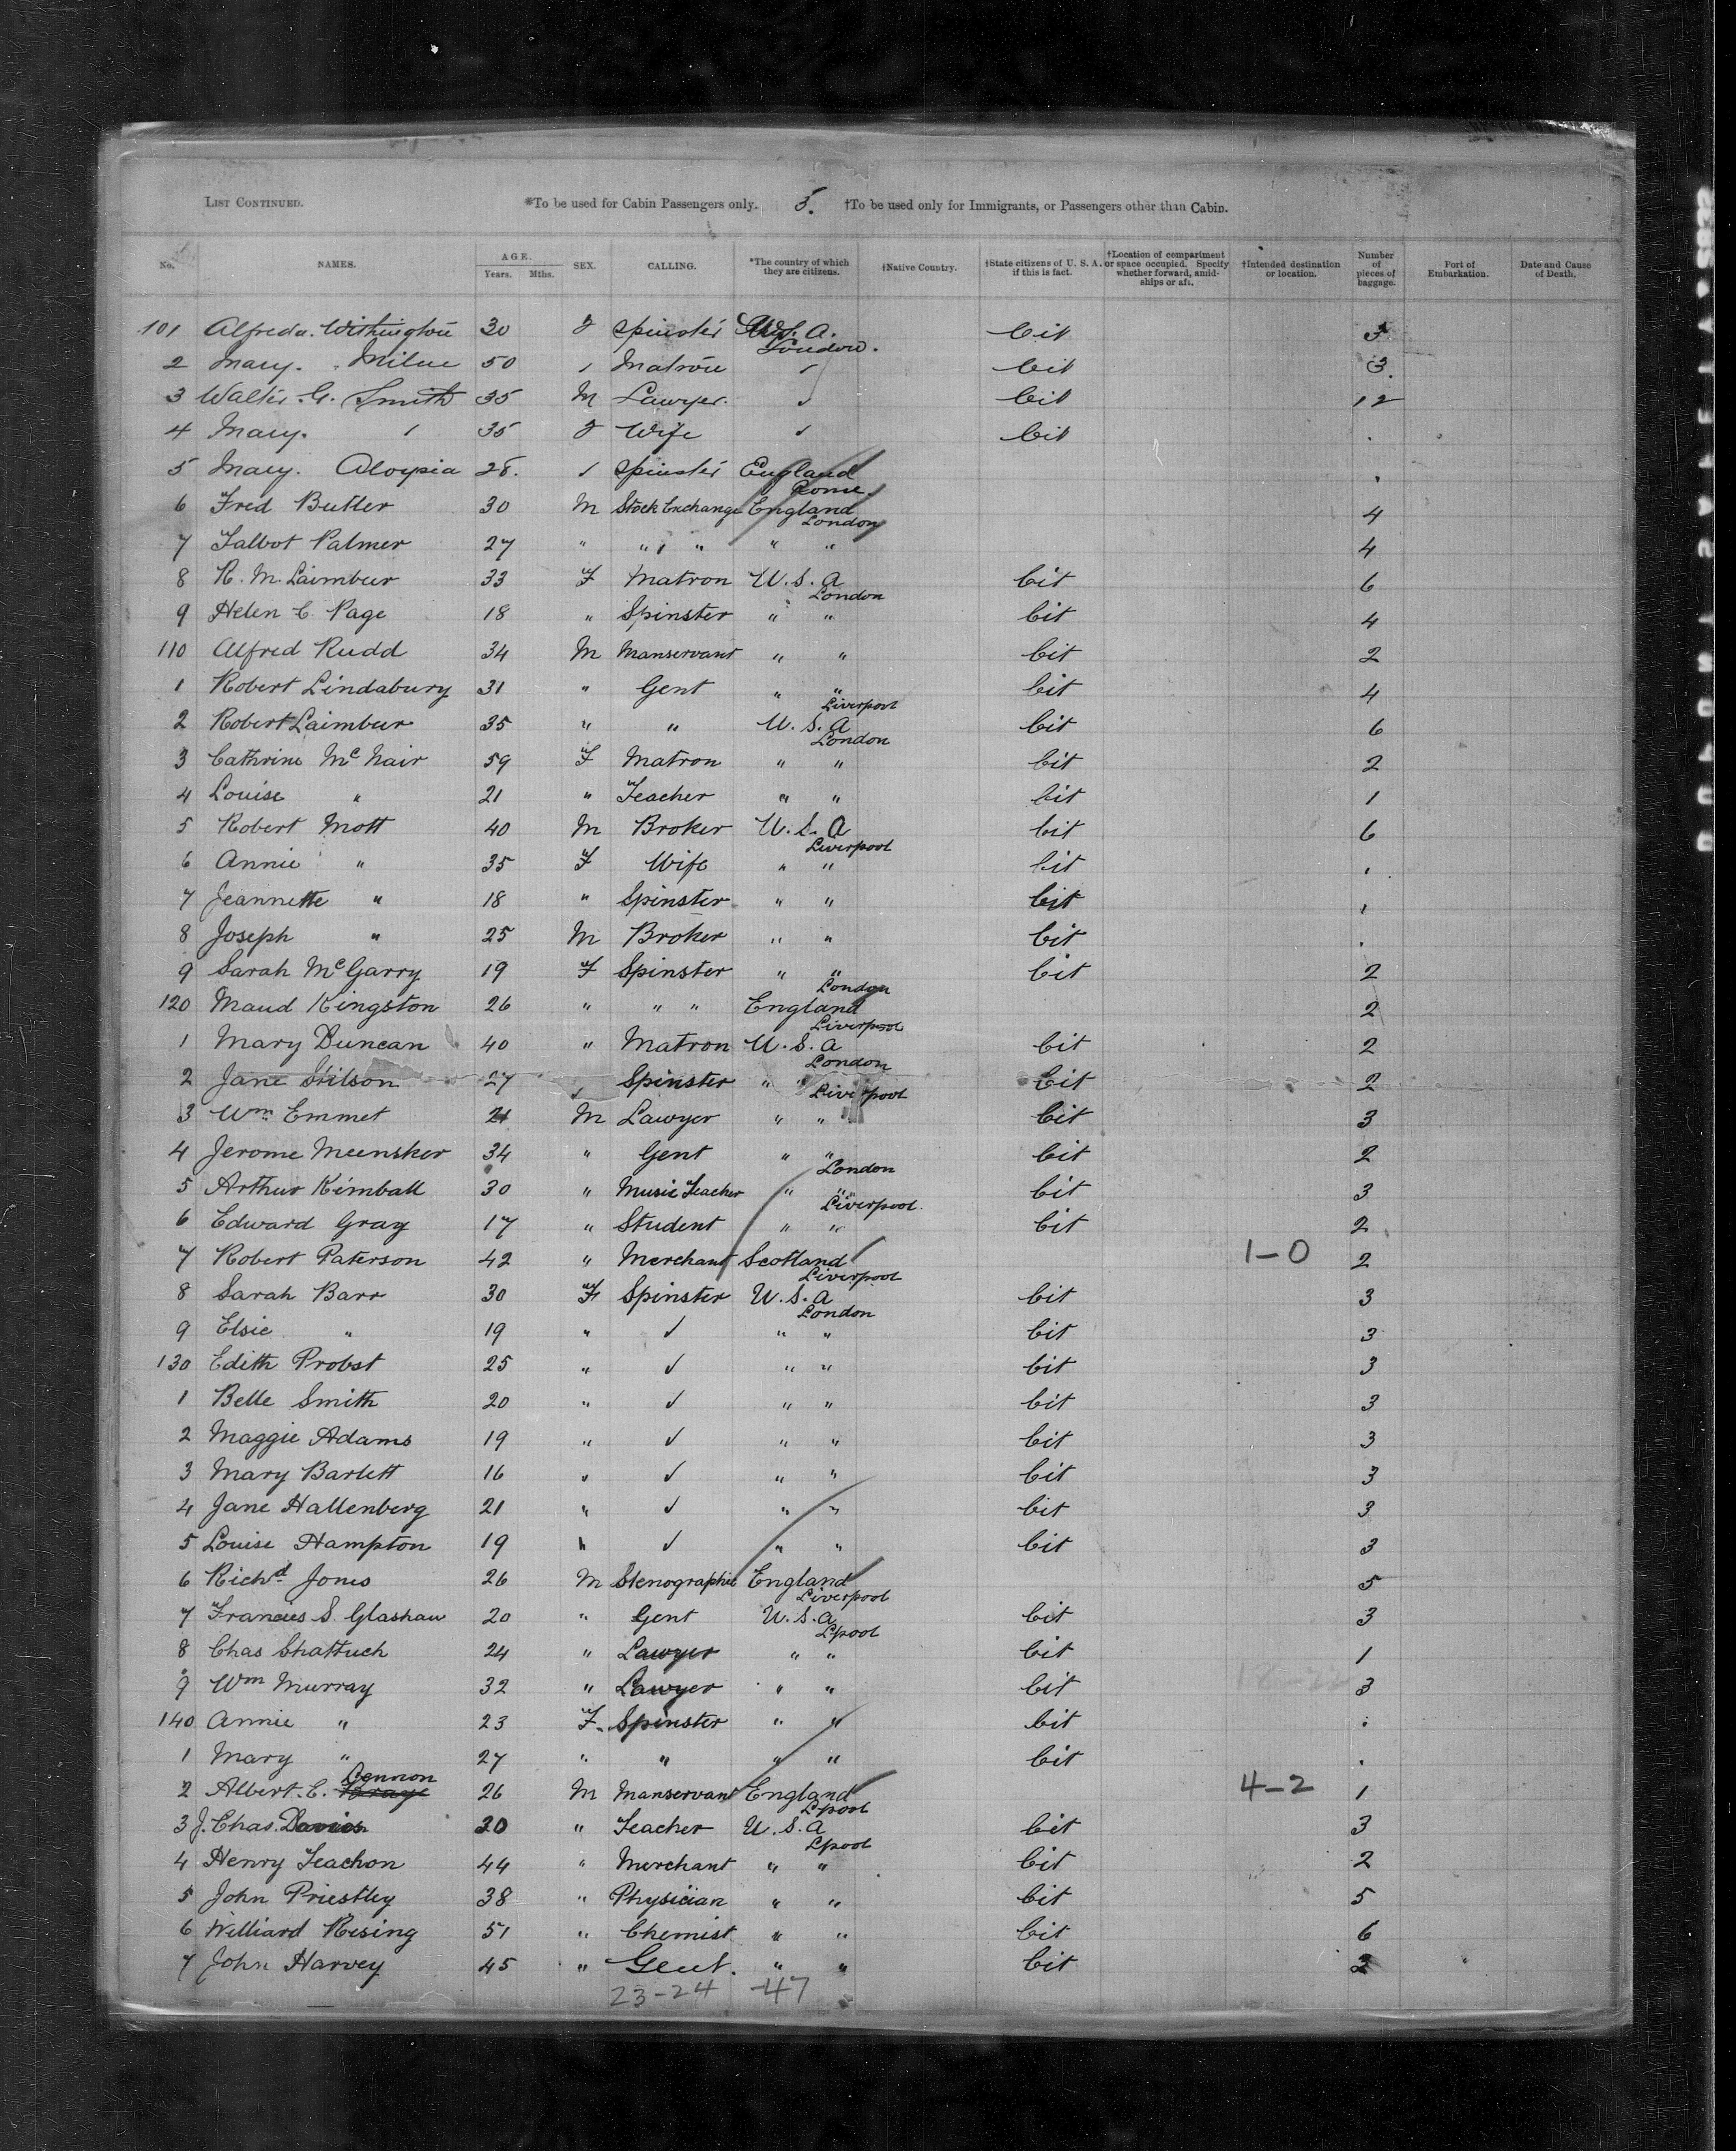 LIST CONTINUED. *To be used for Cabin Passengers only. 5. †To be used only for Immigrants, or Passengers other than Cabin.
No. NAMES. AGE. Years. Mths. SEX. CALLING. *The country of which they are citizens. †Native Country. †State citizens of U. S. A. if this is fact. †Location of compartment or space occupied. Specify whether forward, amidships or aft. †Intended destination or location. Number of pieces of baggage. Port of Embarkation. Date and Cause of Death.
101 Alfreda. Withington 30 F Spinster U.S.A. Cit 3
London.
2 Mary. Milne 50 / Matron / Cit 3.
3 Walter. G. Smith 35 M Lawyer. ✓ Cit 12
4 Mary. / 35 F Wife ✓ Cit .
5 Mary. Aloysia 28. / Spinster England .
Rome.
6 Fred Butler 30 M Stock Exchange England 4
London
7 Talbot Palmer 27 " " " " " 4
8 R. M. Laimbeer 33 F Matron U.S.A Cit 6
London
9 Helen C Page 18 " Spinster " " Cit 4
110 Alfred Rudd 34 M Manservant " " Cit 2
1 Robert Lindabury 31 " Gent " " Cit 4
Liverpool
2 Robert Laimbeer 35 " " U.S.A Cit 6
London
3 Cathrine McNair 59 F Matron " " Cit 2
4 Louise " 21 " Teacher " " Cit 1
5 Robert Mott 40 M Broker U.S.A Cit 6
Liverpool
6 Annie " 35 F Wife " " Cit .
7 Jeannette " 18 " Spinster " " Cit .
8 Joseph " 25 M Broker " " Cit .
9 Sarah McGarry 19 F Spinster " " Cit 2
London
120 Maud Kingston 26 " " " England 2
Liverpool
1 Mary Duncan 40 " Matron U.S.A Cit 2
London
2 Jane Stilson 27 Spinster " " Cit 2
Liverpool
3 Wm Emmet 21 M Lawyer " " Cit 3
4 Jerome Meensker 34 " Gent " " Cit 2
London
5 Arthur Kimball 30 " Music Teacher " " Cit 3
Liverpool.
6 Edward Gray 17 " Student " " Cit 2
7 Robert Paterson 42 " Merchant Scotland 1-0 2
Liverpool
8 Sarah Barr 30 F Spinster U.S.A Cit 3
London
9 Elsie " 19 " ✓ " " Cit 3
130 Edith Probst 25 " ✓ " " Cit 3
1 Belle Smith 20 " ✓ " " Cit 3
2 Maggie Adams 19 " ✓ " " Cit 3
3 Mary Barlett 16 " ✓ " " Cit 3
4 Jane Hallenberg 21 " ✓ " " Cit 3
5 Louise Hampton 19 " ✓ " " Cit 3
6 Richd Jones 26 M Stenographic England 5
Liverpool
7 Francies S. Glashau 20 " Gent U.S.A Cit 3
Lpool
8 Chas Shattuck 24 " Lawyer " " Cit 1
9 Wm Murray 32 " Lawyer " " Cit 3
140 Annie " 23 F. Spinster " " Cit .
1 Mary " 27 " " " " Cit .
Gennon
2 Albert. C. Braye 26 M Manservant England 4-2 1
Lpool
3 J. Chas. Davies 30 " Teacher U.S.A Cit 3
Lpool
4 Henry Teachon 44 " Merchant " " Cit 2
5 John Priestley 38 " Physician " " Cit 5
6 Williard Rising 51 " Chemist " " Cit 6
7 John Harvey 45 " Gent. " " Cit 2
23-24 -47